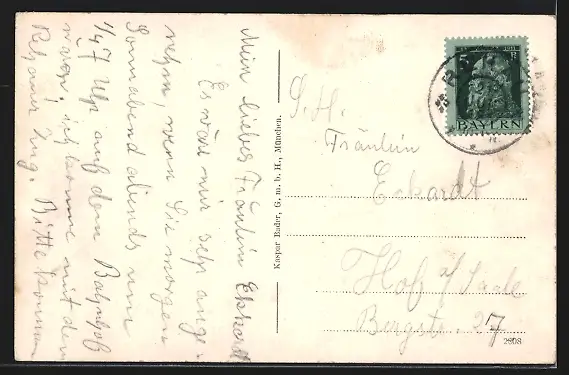 Mein liebes Fräulein Eckardt
Es wäre mir sehr ange-
nehm, wenn Sie morgen
Sonnabend abends um
1/47 Uhr auf dem Bahnhof
wären, ich komme mit dem
Zug. Bitte kommen
Kaspar Bader, G. m. b. H., München.
5
BAYERN
S. H.
Fräulein
Eckardt
Hof a/Saale
Bergstr. 27
2908